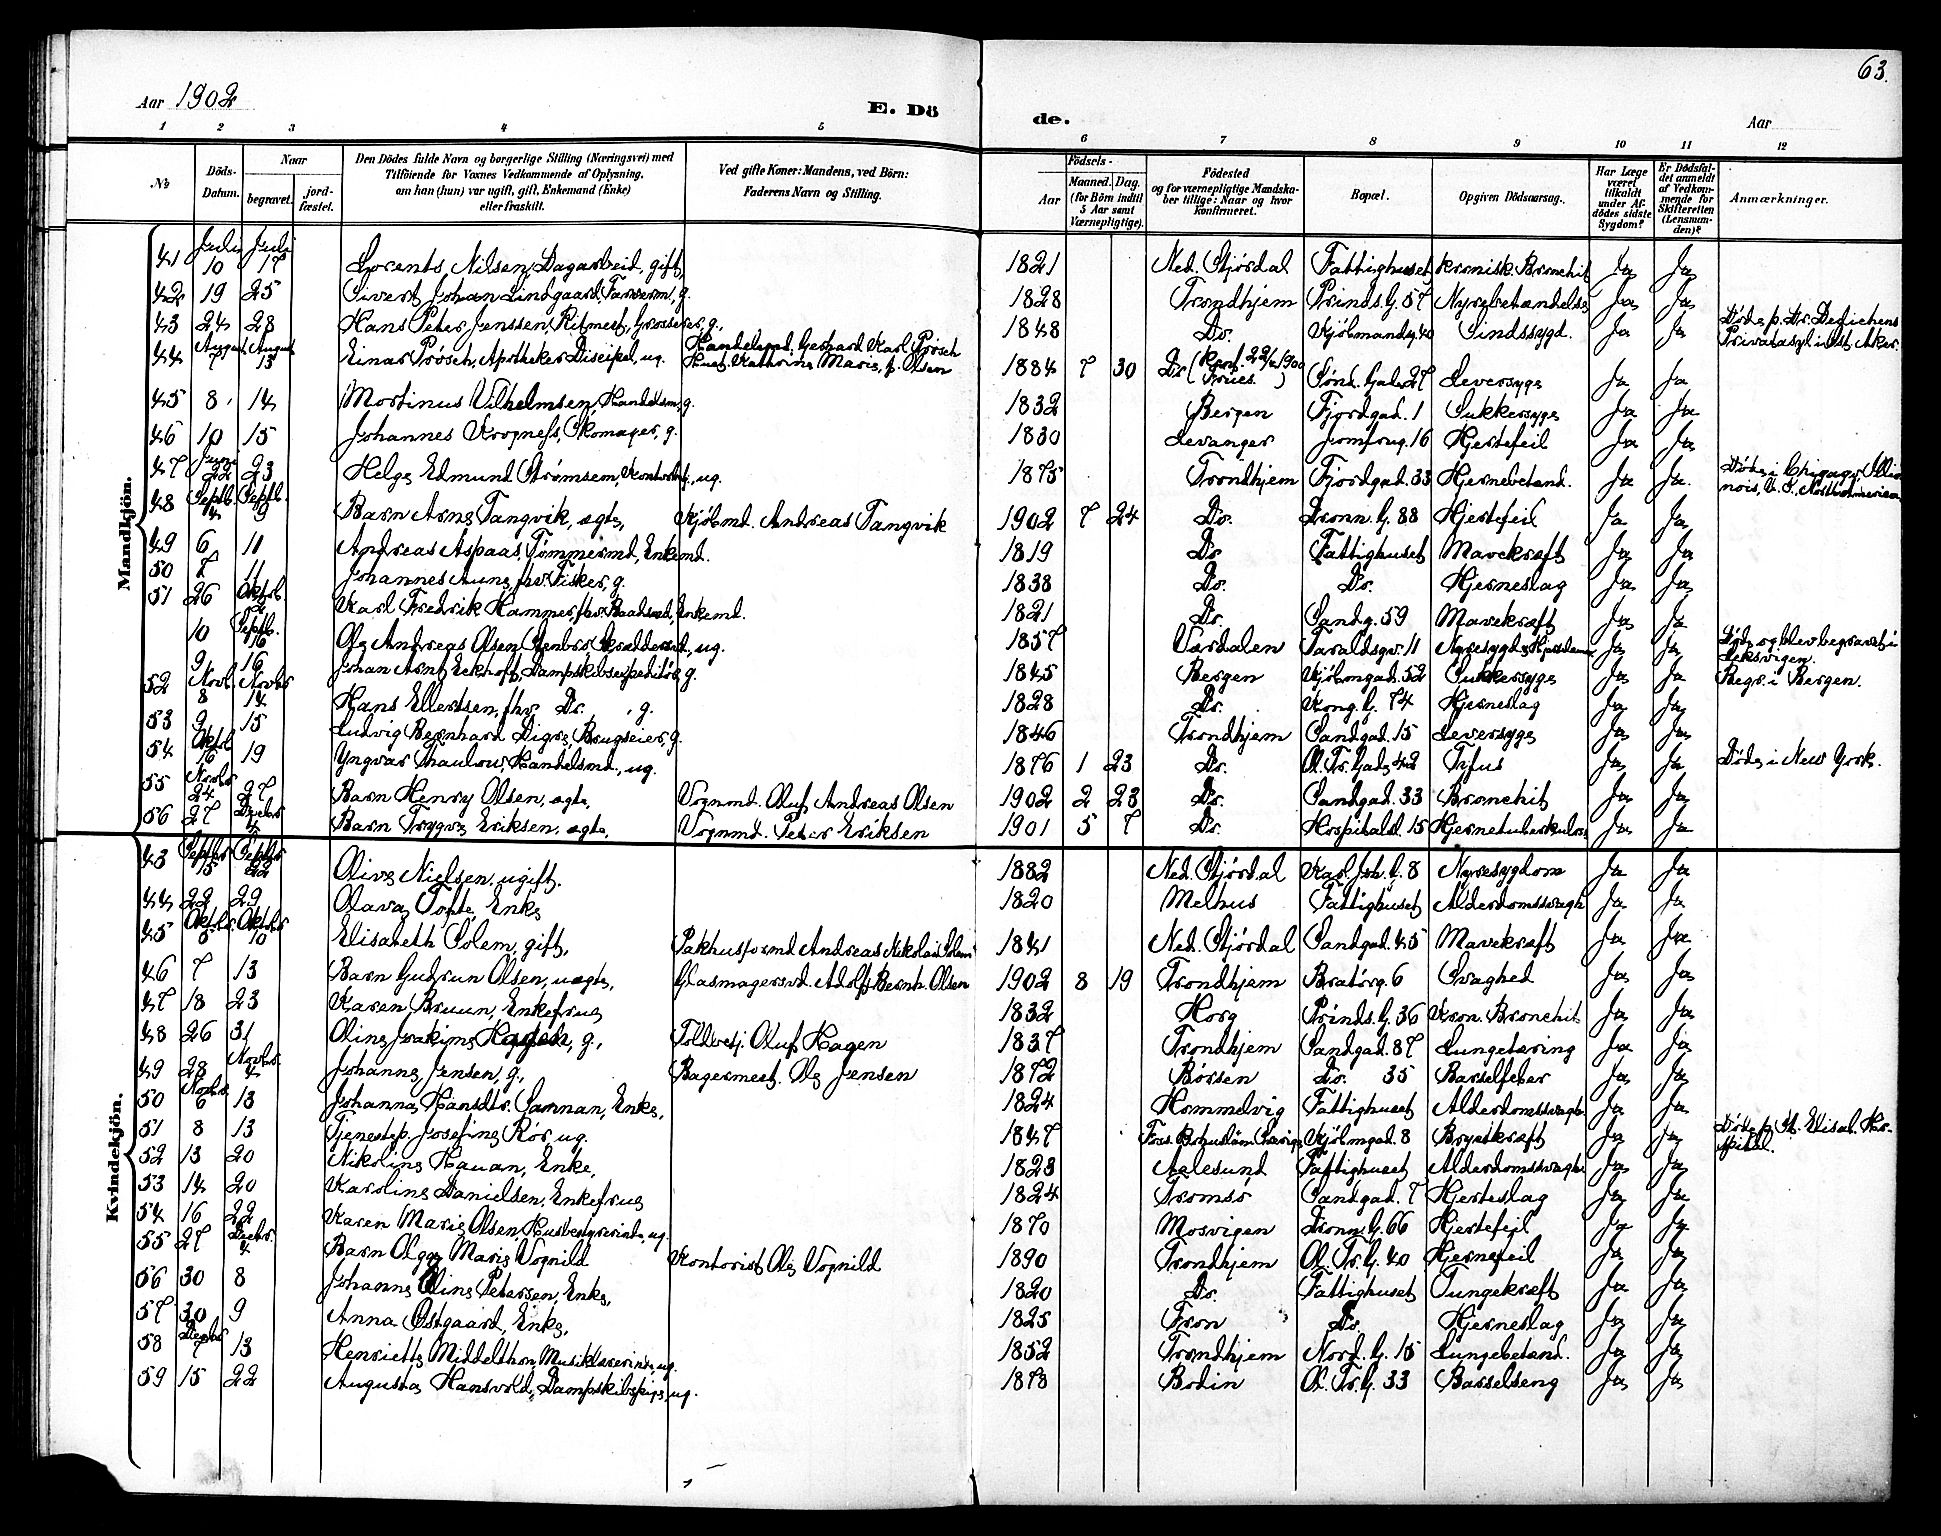 63.
Aar 1902
E. Dö
de.
Aar
1 2 3 4 5 6 7 8 9 10 11 12
№
Döds-Datum.
Naar
begravet.
jord-fæstet.
Den Dödes fulde Navn og borgerlige Stilling (Næringsvei) med
Tilföiende for Voxnes Vedkommende af Oplysning,
om han (hun) var ugift, gift, Enkemand (Enke)
eller fraskilt.
Ved gifte Koner: Mandens, ved Börn:
Faderens Navn og Stilling.
Födsels-
Aar
Maaned.
Dag.
(for Börn indtil
5 Aar samt
Værnepligtige).
Födested
og for værnepligtige Mandska-
ber tillige: Naar og hvor
konfirmeret.
Bopæl.
Opgiven Dödsaarsag.
Har Læge
været
tilkaldt
under Af-
dödes sidste
Sygdom?
Er Dödsfal-
det anmeldt
af Vedkom-
mende for
Skifteretten
(Lensman-
den)?
Anmærkninger.
Mandkjön.
Juli Juli
41 10 17 Lorents Nilsen, Dagarbeid, gift, 1821 Ned. Stjørdal Fattighuset kronisk Bronchit Ja Ja
42 19 25 Sivert Johan Lindgaard, g. 1828 Trondhjem Prinds. G. 57 Nyrebetændelse Ja Ja
43 24 28 Hans Peter Jenssen, Ritmest, Grosserer, g., 1848 Do. Kjøbmandsg. 40 Sindssygd. Ja Ja Døde p. Dr. Dedichens
Privatasyl i Vest. Aker.
August August
44 7 13 Einar Prøsch, Apotheker Discipel, ug. Handelsmd. Gerhard Karl Prøsch
Hust. Kathrine Marie, f. Olsen 1884 7 30 Do (Konf. 1900
Frues) Sønd. Gade 27 Leversyge Ja Ja
45 8 14 Mortinus Vilhelmsen, Handelsm, g. 1832 Bergen Fjordgad. 1 Sukkersyge Ja Ja
46 10 15 Johannes Krogness, Skomager, g. 1830 Levanger Jomfrug. 16 Hjertefeil Ja Ja
Juni
47 22 23 Helge Edmund Strømsem, ug. 1875 Trondhjem Fjordgad. 33 Hjernebetænd. Ja Ja. Døde i Chicago, Illi
nois, U. S. Nordamerica
Septb. Septb.
48 4 9 Barn Arne Tangvik, ægte, Kjøbmd. Andreas Tangvik 1902 7 24 Do. Dronn. G. 88 Hjertefeil Ja Ja
49 6 11 Andreas Aspaas, Tømmermd, Enkemd. 1819 Do. Fattighuset Mavekræft Ja Ja
50 7 11 Johannes Aune, fhv. Fisker, g. 1838 Do. Do. Hjerneslag Ja Ja
51 26 Oktbr. 2 Karl Fredrik Hammer, fhv. Enkemd. 1821 Do. Sandg. 59 Mavekræft Ja Ja
10 Septb. 16 Ole Andreas Olsen, ug. 1857 Værdalen Taraldsgv. 11 Ja Ja Døde og blev begravet i
Leksvigen.
9 16 Johan Arnt Eckhoff, Dampskibsexpeditør, g. 1845 Bergen Kjøbmgad. 52 Sukkersyge Ja Ja Begr. i Bergen.
Novb. Novbr
52 8 14 Hans Ellertsen, fhv. Do. , g. 1828 Do. Kong. G. 74 Hjerneslag Ja Ja
53 9 15 Ludvig Bernhard Digre, Brugseier, g. 1846 Trondhjem Sandgad. 15 Leversyge Ja Ja
Oktb.
54 16 19 Yngvar Thaulow, Handelsmd., ug. 1876 1 23 Do. Ol. Tr. Gade 42 Tyfus Ja Ja Døde i New York.
Novbr
55 24 27 Barn Henry Olsen, ægte, Vognmd. Oluf Andreas Olsen 1902 2 23 Do. Sandgad. 33 Bronchit Ja Ja
56 27 Decbr 4 Barn Trygve Eriksen, ægte, Vognmd. Peter Eriksen 1901 5 7 Do. Hospitalsl. 15 Hjernetuberkulose Ja Ja
Kvindekjön.
Septbr Septbr
43 15 22 Olive Nielsen, ugift. 1882 Ned. Stjørdal Karl Joh. G. 8 Nyresygdom Ja Ja
44 22 29 Olava Tofte, Enke 1820 Melhus Fattighuset Alderdomssvagh Ja Ja
Oktbr. Oktbr
45 5 10 Elisabeth Solem, gift, Pakhusformd Andreas Nikolai Solem 1841 Ned. Stjørdal Sandgad. 45 Mavekræft Ja Ja
46 7 13 Barn Gudrun Olsen, uægte, Glasmagersvd. Adolf Bernh. Olsen 1902 8 19 Trondhjem Bratørg. 6 Svaghed Ja Ja
47 18 23 Karen Bruun, Enkefrue 1832 Horg Prinds. G. 36 Kron. Bronchit Ja Ja
48 26 31 Oline Joakime Hagen, g., Toldbetj. Oluf Hagen 1837 Trondhjem Sandgad. 87 Lungetæring Ja Ja
49 28 Novbr. 4 Johanne Jensen, g., Bagermest. Ole Jensen 1872 Børsen Do. 35 Barselfeber Ja Ja
Novbr.
50 6 13 Johanna Hansdtr. Samnan, Enke, 1824 Hommelvig Fattighuset Alderdomssvagh Ja Ja
51 8 13 Tjenestep. Josefine Rör, ug. 1847 Foss. Bohuslän Sverige Kjøbmgad. 8 Brystkræft Ja Ja Døde p. St. Elisab. Ho-
spital.
52 13 20 Nikoline Hauan, Enke, 1823 Aalesund Fattighuset Alderdomssvagh Ja Ja
53 14 20 Karoline Danielsen, Enkefrue 1824 Tromsø Sandgad. 7 Hjerteslag Ja Ja
54 16 22 Karen Marie Olsen, Husbestyrerinde, ug. 1870 Mosvigen Dronn. G. 66 Hjertefeil Ja Ja
55 27 Decbr. 4 Barn Olga Marie Vognild Kontorist Ole Vognild 1890 Trondhjem Ol. Tr. G. 40 Hjernefeil Ja Ja
56 30 8 Johanne Oline Petersen, Enke, 1820 Do. Fattighuset Tungekræft Ja Ja
57 30 9 Anna Østgaard, Enke, 1825 Fron Do. Hjerneslag Ja Ja
Decbr
58 7 13 Henriette Middelthon, Musiklærerinde, ug. 1852 Trondhjem Nord. G. 15 Lungebetænd. Ja Ja
59 15 22 Augusta Hansvold, Dampskibspige, ug. 1878 Bodin Ol. Tr. G. 33 Barselseng Ja Ja